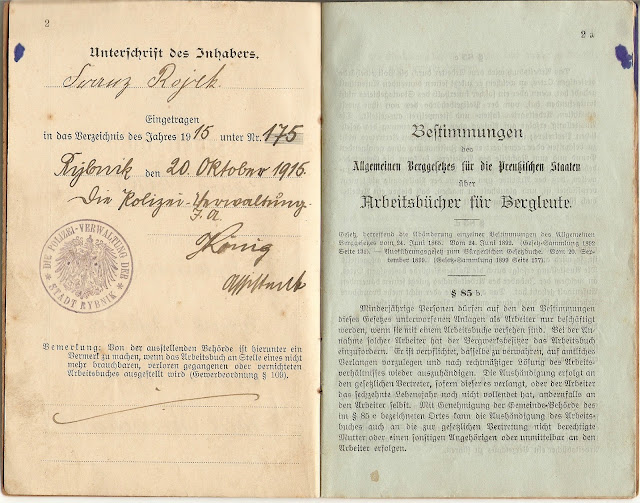 2
Unterschrift des Inhabers.
Franz Rojek
Eingetragen
in das Verzeichnis des Jahres 1915 unter Nr. 175
Rybnik den 20. Oktober 1915.
Die Polizei-Verwaltung.
J. A.
König
Assistent
DIE POLIZEI-VERWALTUNG DER
STADT RYBNIK
Bemerkung: Von der ausstellenden Behörde ist hierunter ein
Vermerk zu machen, wenn das Arbeitsbuch an Stelle eines nicht
mehr brauchbaren, verloren gegangenen oder vernichteten
Arbeitsbuches ausgestellt wird (Gewerbeordnung § 109).
2a
Bestimmungen
des
Allgemeinen Berggesetzes für die Preußischen Staaten
über
Arbeitsbücher für Bergleute.
Gesetz, betreffend die Abänderung einzelner Bestimmungen des Allgemeinen
Berggesetzes vom 24. Juni 1865. Vom 24. Juni 1892. (Gesetz-Sammlung 1892
Seite 131). — Ausführungsgesetz zum Bürgerlichen Gesetzbuche. Vom 20. Sep-
tember 1899. (Gesetz-Sammlung 1899 Seite 177).
§ 85 b.
Minderjährige Personen dürfen auf den den Bestimmungen
dieses Gesetzes unterworfenen Anlagen als Arbeiter nur beschäftigt
werden, wenn sie mit einem Arbeitsbuche versehen sind. Bei der An-
nahme solcher Arbeiter hat der Bergwerksbesitzer das Arbeitsbuch
einzufordern. Er ist verpflichtet, dasselbe zu verwahren, auf amtliches
Verlangen vorzulegen und nach rechtmäßiger Lösung des Arbeits-
verhältnisses wieder auszuhändigen. Die Aushändigung erfolgt an
den gesetzlichen Vertreter, sofern dieser es verlangt, oder der Arbeiter
das sechzehnte Lebensjahr noch nicht vollendet hat, andernfalls an
den Arbeiter selbst. Mit Genehmigung der Gemeinde-Behörde des
im § 85 c bezeichneten Ortes kann die Aushändigung des Arbeits-
buches auch an die zur gesetzlichen Vertretung nicht berechtigte
Mutter oder einen sonstigen Angehörigen oder unmittelbar an den
Arbeiter erfolgen.